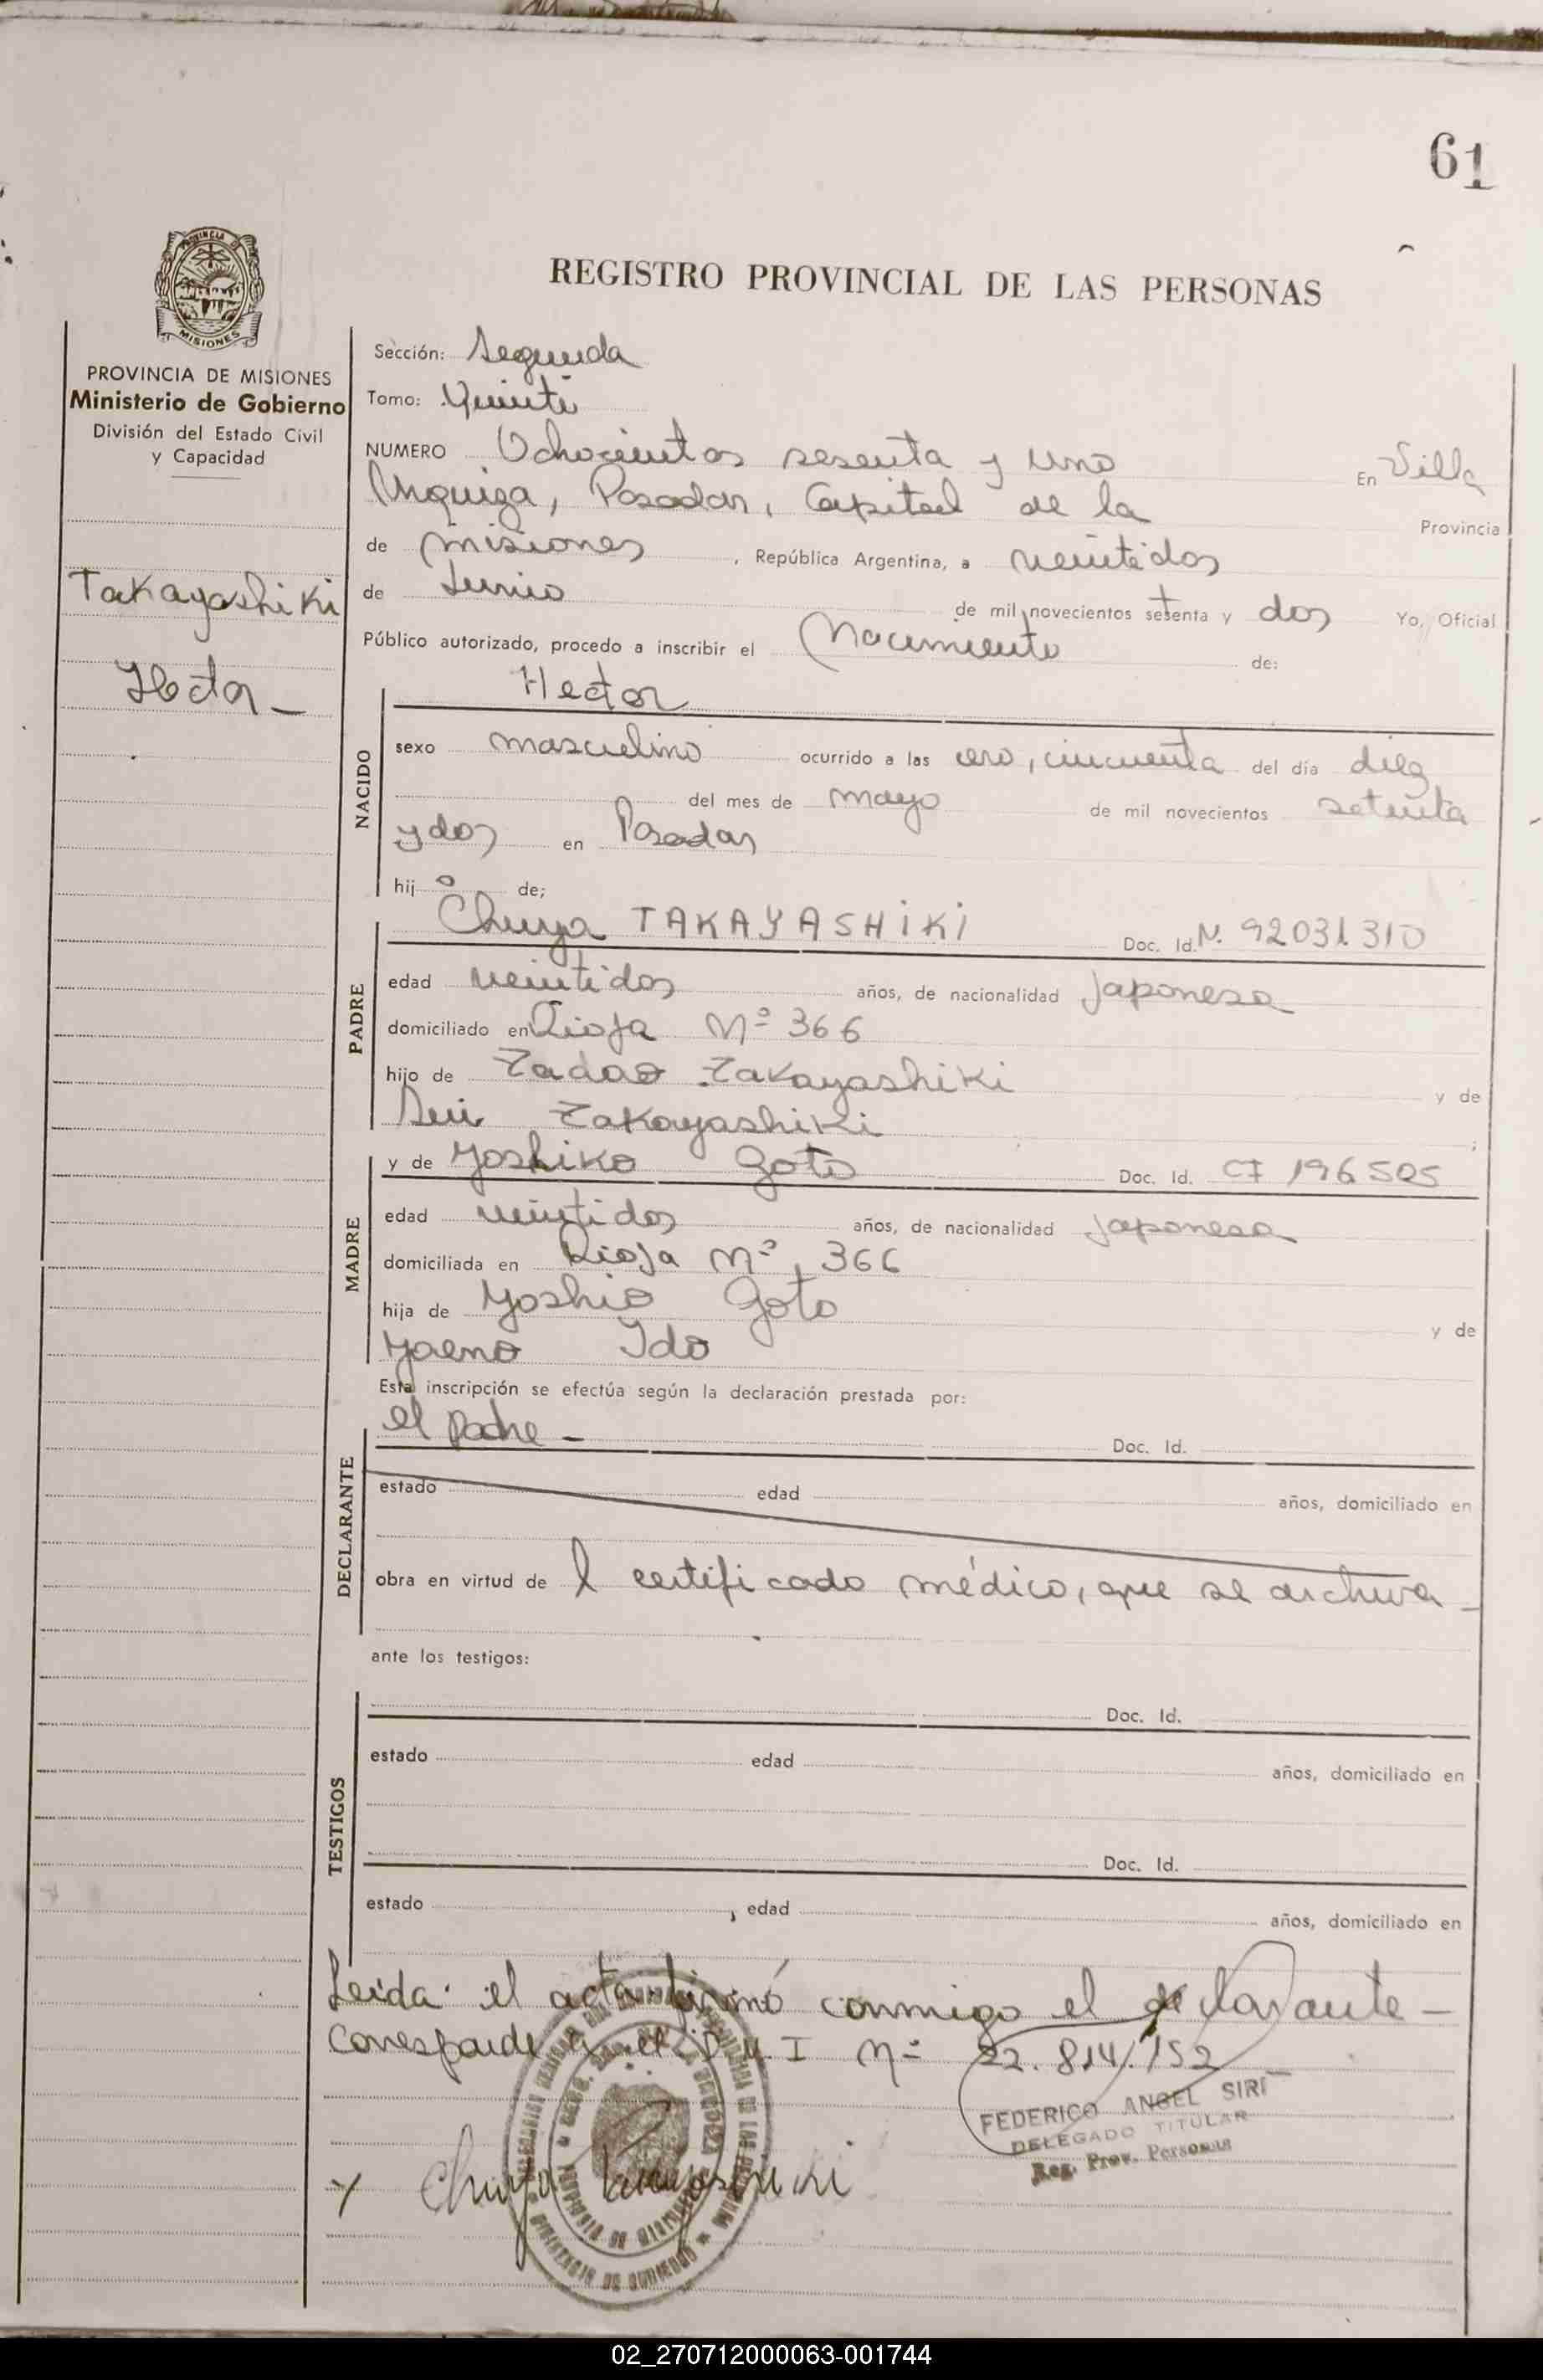 61
PROVINCIA DE MISIONES
REGISTRO PROVINCIAL DE LAS PERSONAS
PROVINCIA DE MISIONES
Ministerio de Gobierno
División del Estado Civil
y Capacidad
Takayashiki
Hector -
Sección: Segunda
Tomo: Quinto
NUMERO Ochocientos sesenta y uno En Villa
Urquiza, Posadas, Capital de la Provincia
de misiones, República Argentina, a veintidos
de Junio de mil novecientos setenta y dos Yo, Oficial
Público autorizado, procedo a inscribir el Nacimiento de:
Hector
NACIDO
sexo masculino ocurrido a las cero, cincuenta del día diez
del mes de mayo de mil novecientos setenta
y dos en Posadas
hijo de;
PADRE
Chuya TAKAYASHIKI Doc. Id. N. 92031310
edad veintidos años, de nacionalidad Japonesa
domiciliado en Rioja Nº 366
hijo de Tadao Takayashiki y de
Sui Takayashiki;
MADRE
y de Yoshiko Goto Doc. Id. CI 196505
edad veintidos años, de nacionalidad Japonesa
domiciliada en Rioja Nº 366
hija de Yoshio Goto y de
Yaeno Ido
Esta inscripción se efectúa según la declaración prestada por:
DECLARANTE
el Padre - Doc. Id.
estado edad años, domiciliado en
obra en virtud de l certificado médico, que se archiva -
ante los testigos:
TESTIGOS
Doc. Id.
estado edad años, domiciliado en
Doc. Id.
estado, edad años, domiciliado en
Leida el acta firmó conmigo el declarante -
Corresponde el D.N.I Nº 22.814.152
FEDERICO ANGEL SIRI
DELEGADO TITULAR
Reg. Prov. Personas
Chuya Takayashiki
02_270712000063-001744